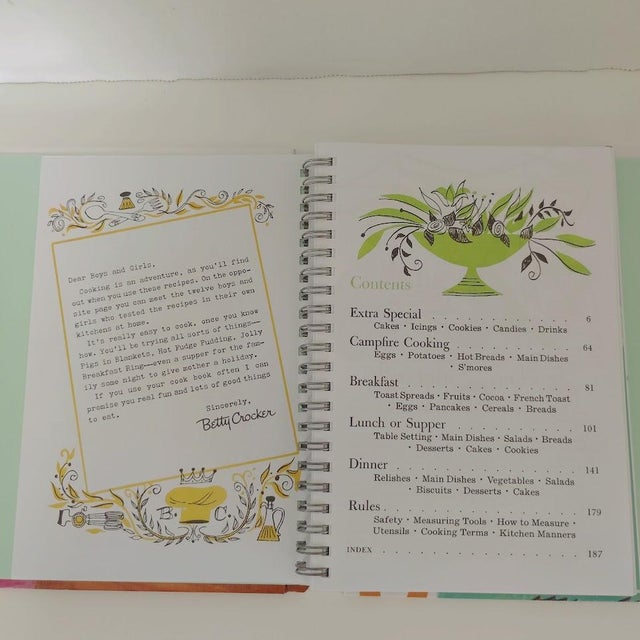 Dear Boys and Girls,
Cooking is an adventure, as you'll find
out when you use these recipes. On the oppo-
site page you can meet the twelve boys and
girls who tested the recipes in their own
kitchens at home.
It's really easy to cook, once you know
how. You'll be trying all sorts of things—
Pigs in Blankets, Hot Fudge Pudding, Jolly
Breakfast Ring—even a supper for the fam-
ily some night to give mother a holiday.
If you use your cook book often I can
promise you real fun and lots of good things
to eat.
Sincerely,
Betty Crocker
B. C.
Contents
Extra Special . . . . . . . . . . 6
Cakes • Icings • Cookies • Candies • Drinks
Campfire Cooking . . . . . . . . . . 64
Eggs • Potatoes • Hot Breads • Main Dishes
• S'mores
Breakfast . . . . . . . . . . 81
Toast Spreads • Fruits • Cocoa • French Toast
• Eggs • Pancakes • Cereals • Breads
Lunch or Supper . . . . . . . . . . 101
Table Setting • Main Dishes • Salads • Breads
• Desserts • Cakes • Cookies
Dinner . . . . . . . . . . 141
Relishes • Main Dishes • Vegetables • Salads
• Biscuits • Desserts • Cakes
Rules . . . . . . . . . . 179
Safety • Measuring Tools • How to Measure •
Utensils • Cooking Terms • Kitchen Manners
INDEX . . . . . . . . . . 187